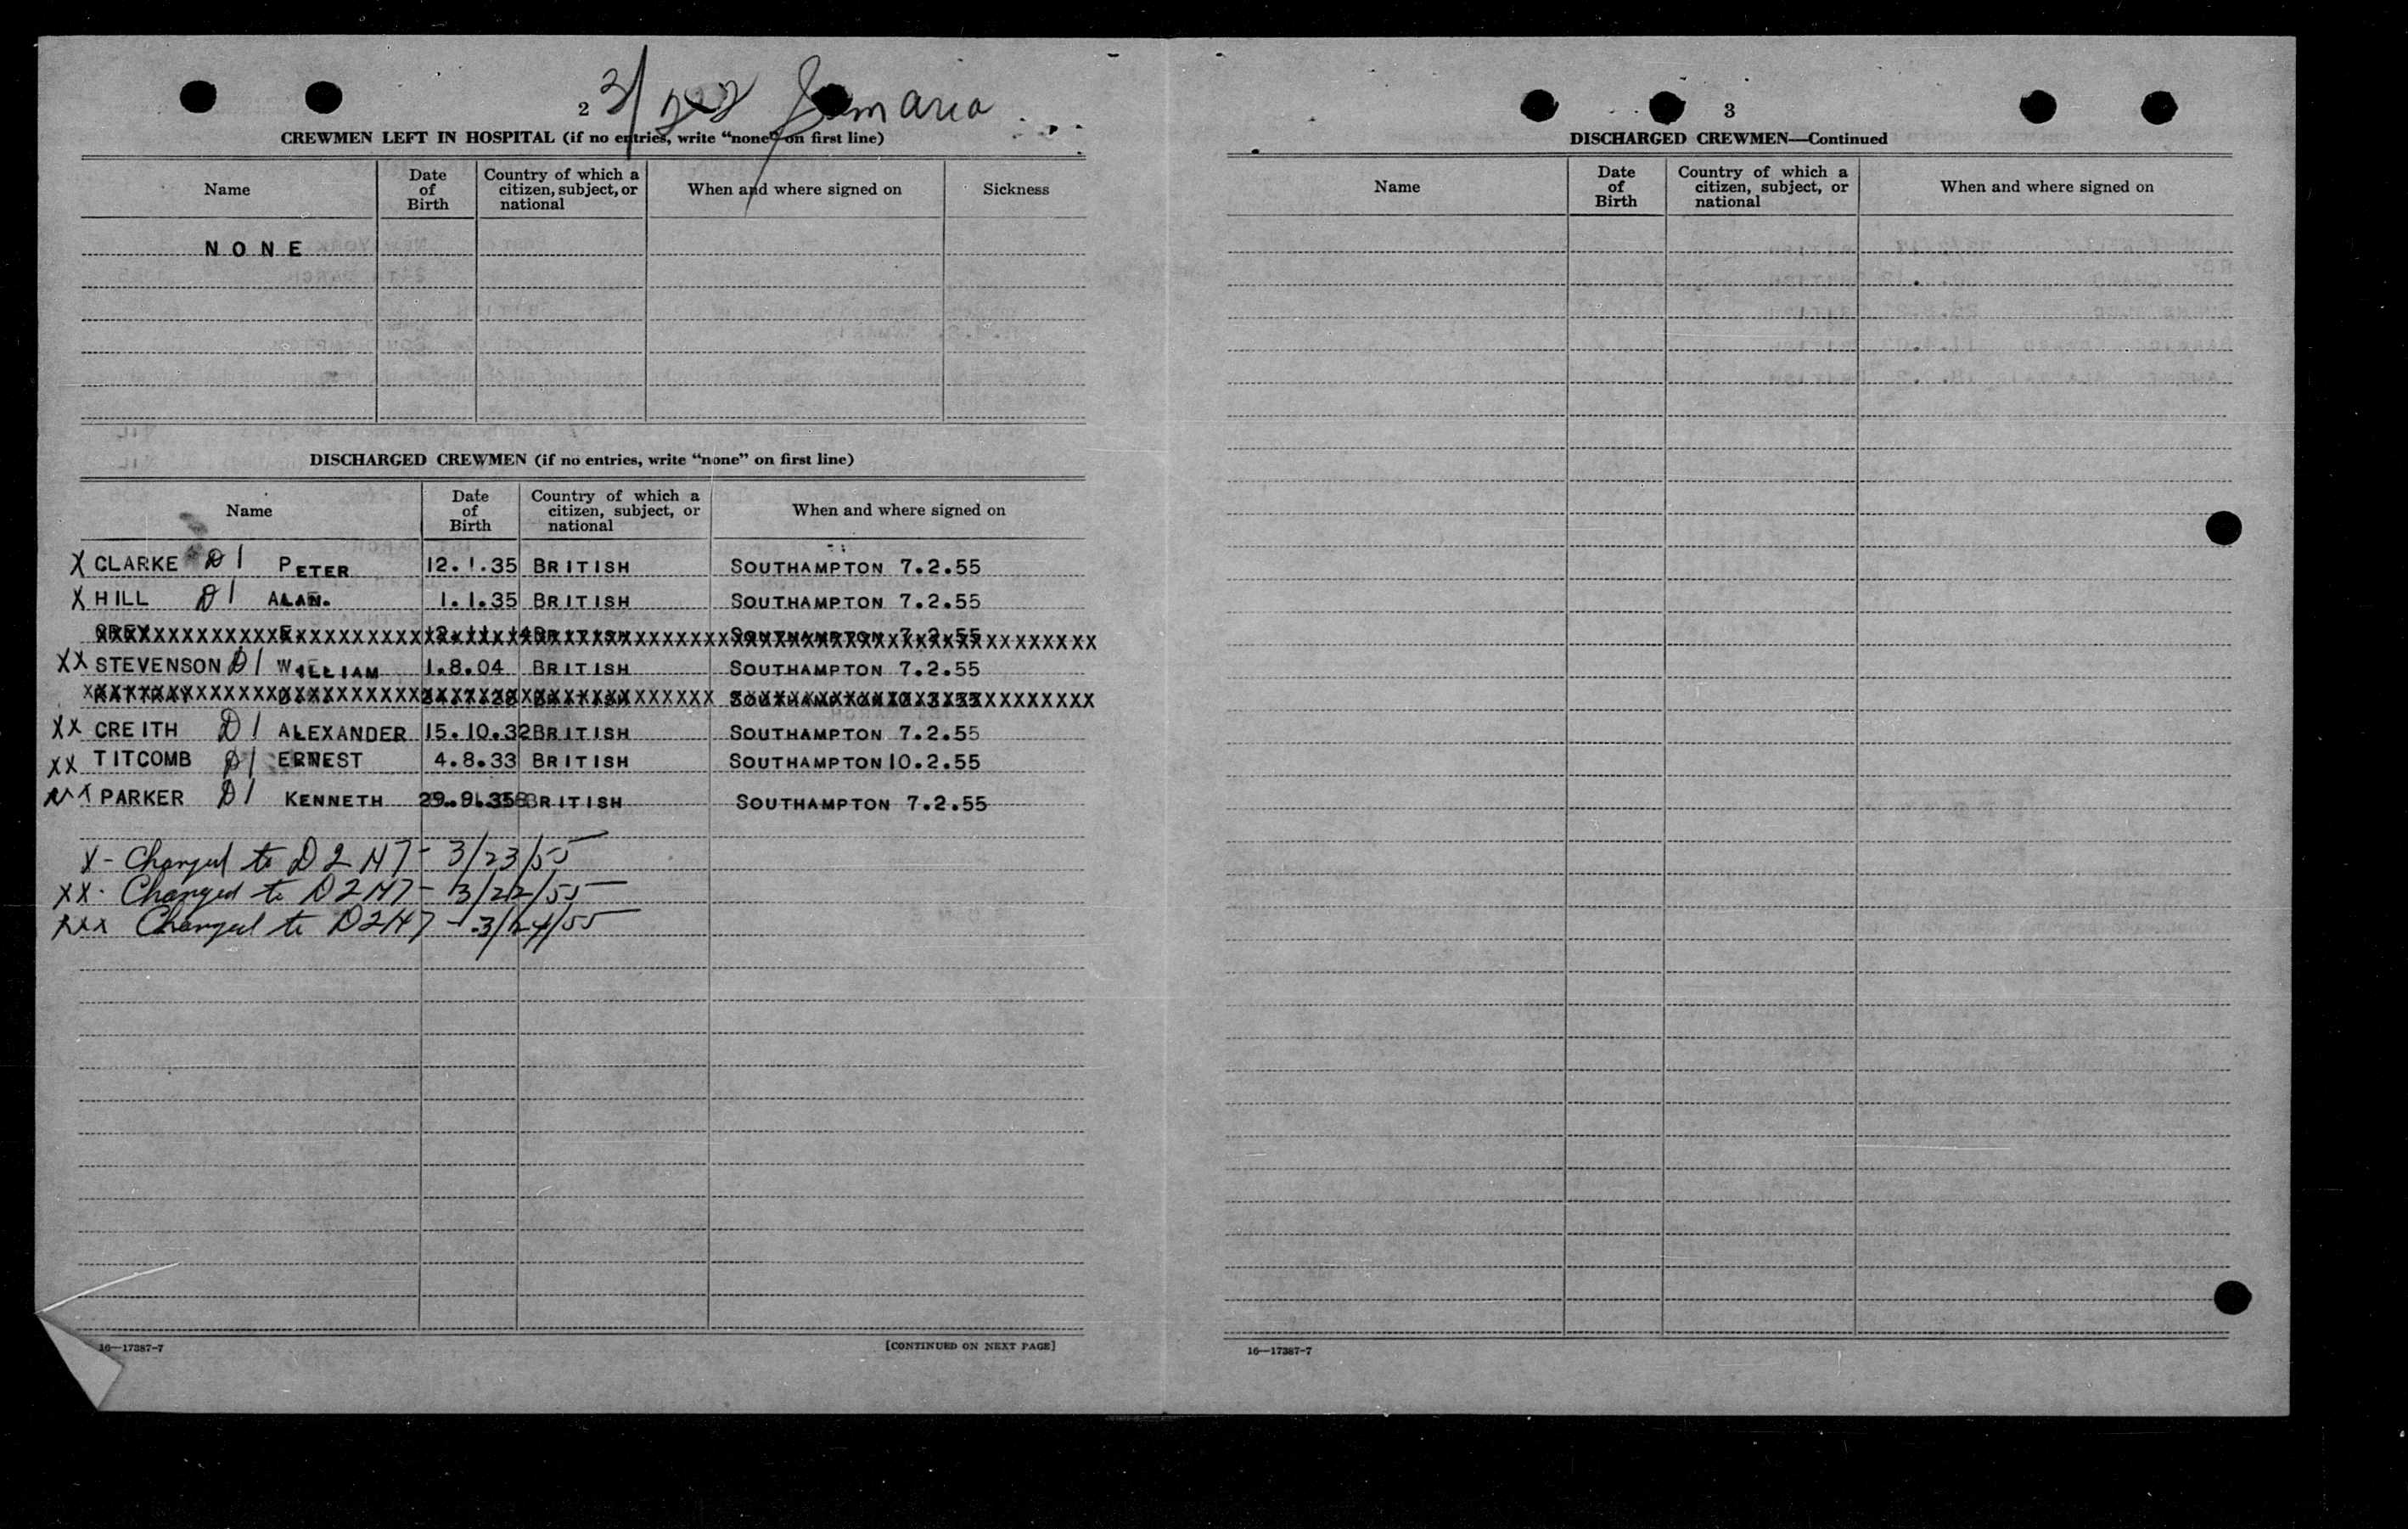 2
3/22 Samaria
CREWMEN LEFT IN HOSPITAL (if no entries, write "none" on first line)
Name
Date of Birth
Country of which a citizen, subject, or national
When and where signed on
Sickness
NONE
DISCHARGED CREWMEN (if no entries, write "none" on first line)
Name
Date of Birth
Country of which a citizen, subject, or national
When and where signed on
X CLARKE D1 PETER 12.1.35 BRITISH SOUTHAMPTON 7.2.55
X HILL D1 ALAN. 1.1.35 BRITISH SOUTHAMPTON 7.2.55
XX STEVENSON D1 WILLIAM 1.8.04 BRITISH SOUTHAMPTON 7.2.55
XX CREITH D1 ALEXANDER 15.10.32 BRITISH SOUTHAMPTON 7.2.55
XX TITCOMB D1 ERNEST 4.8.33 BRITISH SOUTHAMPTON 10.2.55
PARKER D1 KENNETH 29.9.35 BRITISH SOUTHAMPTON 7.2.55
X - Changed to D2 H7 - 3/23/55
XX - Changed to D2H7 - 3/22/55
XXX Changed to D2H7 - 3/24/55
16—17387-7
[CONTINUED ON NEXT PAGE]
3
DISCHARGED CREWMEN—Continued
Name
Date of Birth
Country of which a citizen, subject, or national
When and where signed on
16—17387-7